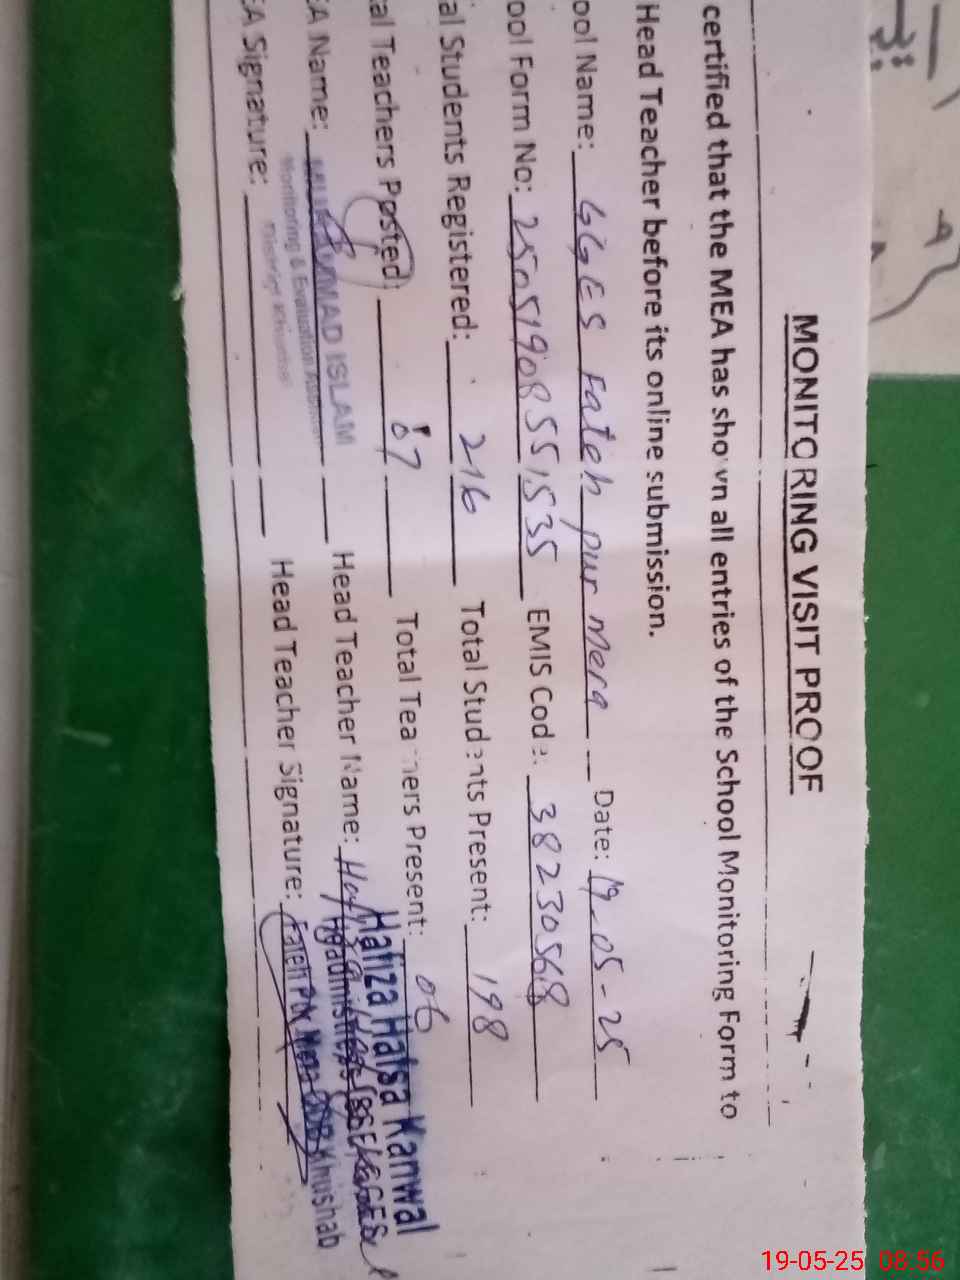 MONITORING VISIT PROOF
certified that the MEA has shown all entries of the School Monitoring Form to
Head Teacher before its online submission.
ool Name: GGES Fateh pur Mera Date: 19-05-25
ool Form No: 25051908551535 EMIS Code: 38230568
al Students Registered: 216 Total Students Present: 198
al Teachers Posted: 07 Total Teachers Present: 06
EA Name: MUHAMMAD ISLAM Head Teacher Name: Hafiza
Monitoring & Evaluation Assistant
Hafiza Hafsa Kanwal
EA Signature: Head Teacher Signature:
Headmistress GGES
Fateh Pur Mera Khushab
19-05-25 08:56